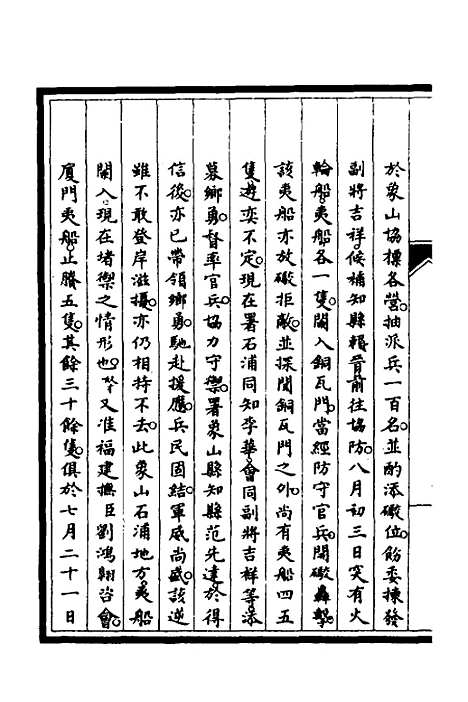 於象山協標各營。抽派兵一百名。並酌添礮位。飭委揀發
副將吉祥。候補知縣賴晉前往協防。八月初三日突有火
輪船。夷船各一隻。闖入銅瓦門。當經防守官兵。開礮轟擊。
該夷船亦放礮拒敵。並探聞銅瓦門之外。尚有夷船四五
隻遊奕不定。現在署石浦同知李華。會同副將吉祥等。添
募鄉勇。督率官兵。協力守禦。署象山縣知縣范先達。於得
信後。亦已帶領鄉勇。馳赴援應。兵民固結。軍威尚盛。該逆
雖不敢登岸滋擾。亦仍相持不去。此象山石浦地方。夷船
闌入。現在堵禦之情形也。又准福建撫臣劉鴻翱咨會。
廈門夷船。止賸五隻。其餘三十餘隻。俱於七月二十一日